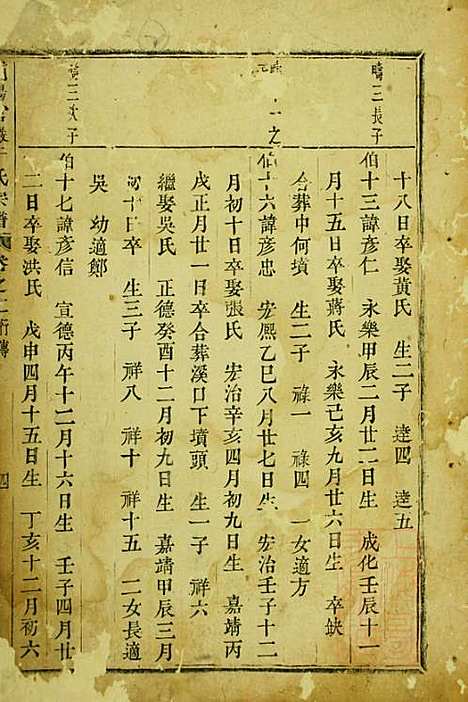 十八日卒娶黃氏 生二子 達四 達五
疇三長子
伯十三諱彥仁 永樂甲辰二月廿二日生 成化壬辰十一
月十五日卒娶蔣氏 永樂己亥九月廿六日生 卒缺
合葬中何墳 生二子 祿一 祿四 一女適方
之
伯十六諱彥忠 宏熙乙巳八月廿七日生 宏治壬子十二
月初十日卒娶張氏 宏治辛亥四月初九日生 嘉靖丙
戌正月廿一日卒合葬溪口下墳頭 生一子 祥六
繼娶吳氏 正德癸酉十二月初九日生 嘉靖甲辰三月
初十日卒 生三子 祥八 祥十 祥十五 二女長適
吳 幼適鄭
三次子
伯十七諱彥信 宣德丙午十二月十六日生 壬子四月廿
二日卒娶洪氏 戊申四月十五日生 丁亥十二月初六
氏宗譜 卷之二 四